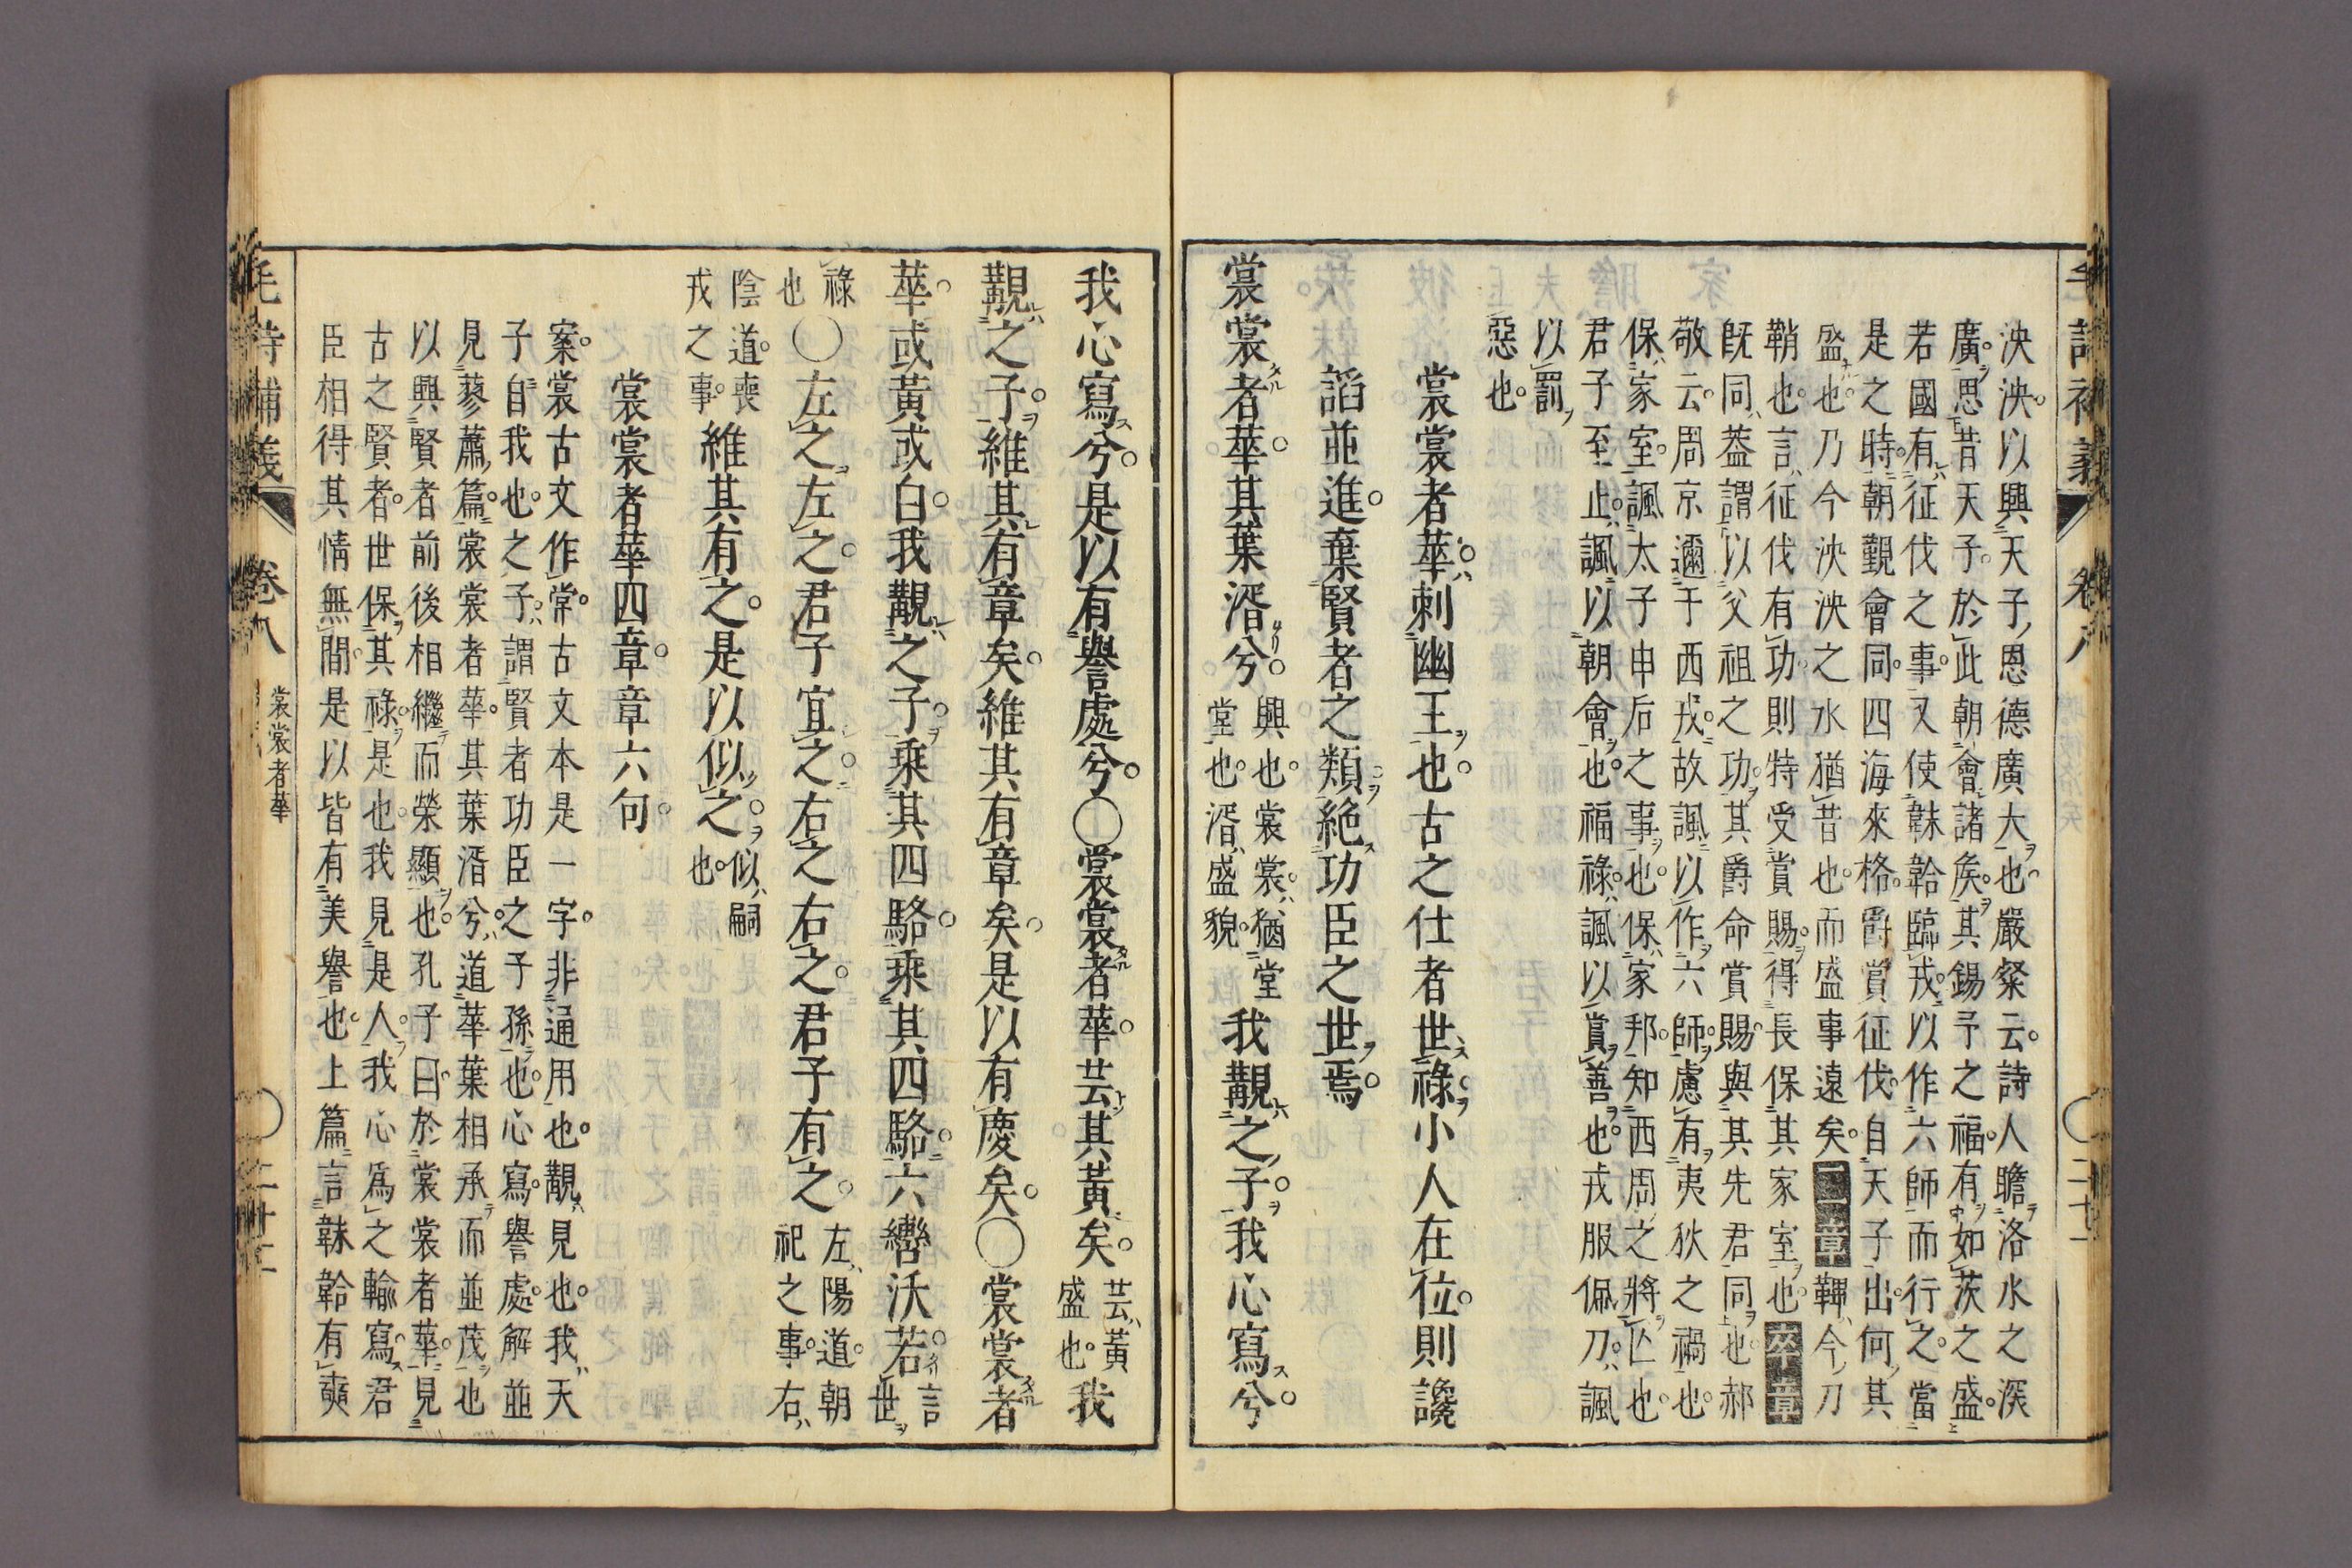 泱泱以興天子恩德廣大也嚴粲云詩人瞻洛水之深
廣思昔天子於此朝會諸矦其錫予之福有如茨之盛
若國有征伐之事又使韎韐臨戎以作六師而行之當
是之時朝覲會同四海來格爵賞征伐自天子出何其
盛也乃今泱泱之水猶昔也而盛事遠矣二章鞞今刀
鞘也言征伐有功則特受賞賜得長保其家室也卒章
旣同葢謂以父祖之功其爵命賞賜與其先君同也郝
敬云周京邇于西戎故諷以作六師慮有夷狄之禍也
保家室諷太子申后之事也保家邦知西周之將亾也
君子至止諷以朝會也福祿諷以賞善也戎服佩刀諷
以罰
惡也
裳裳者華刺幽王也古之仕者世祿小人在位則讒
諂並進棄賢者之類絕功臣之世焉
裳裳者華其葉湑兮
興也裳裳猶堂
堂也湑盛貌
我覯之子我心寫兮
我心寫兮是以有譽處兮〇裳裳者華芸其黃矣
芸黃
盛也
我
覯之子維其有章矣維其有章矣是以有慶矣〇裳裳者
華或黃或白我覯之子乘其四駱乘其四駱六轡沃若
言
世
祿
也
〇左之左之君子宜之右之右之君子有之
左陽道朝
祀之事右
陰道喪
戎之事
維其有之是以似之
似嗣
也
裳裳者華四章章六句
案裳古文作常古文本是一字非通用也覯見也我天
子自我也之子謂賢者功臣之子孫也心寫譽處解並
見蓼蕭篇裳裳者華其葉湑兮道華葉相承而並茂也
以興賢者前後相繼而榮顯也孔子曰於裳裳者華見
古之賢者世保其祿是也我見是人我心爲之輸寫君
臣相得其情無間是以皆有美譽也上篇言韎韐有奭
毛詩補義 卷八 裳裳者華 〇二十二
毛詩補義 卷八 〇二十一